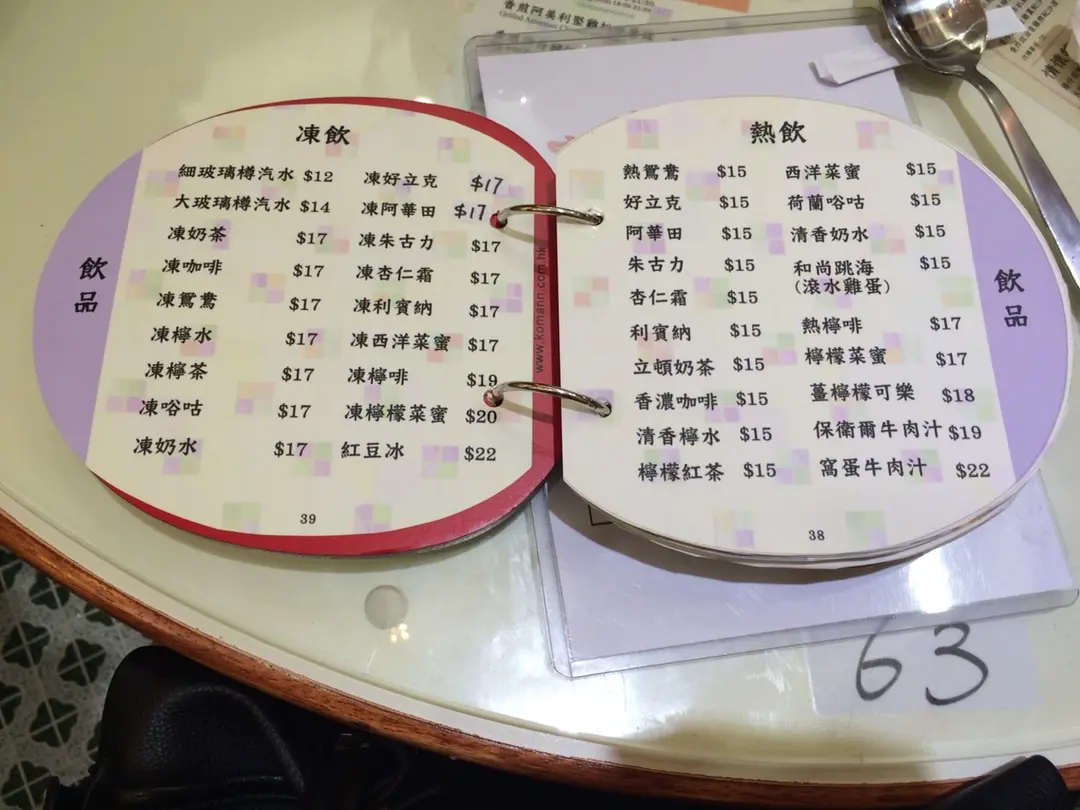 香煎阿美利堅雞
飲品
凍飲
細玻璃樽汽水 $12 凍好立克 $17
大玻璃樽汽水 $14 凍阿華田 $17
凍奶茶 $17 凍朱古力 $17
凍咖啡 $17 凍杏仁霜 $17
凍鴛鴦 $17 凍利賓納 $17
凍檸水 $17 凍西洋菜蜜 $17
凍檸茶 $17 凍檸啡 $19
凍唂咕 $17 凍檸檬菜蜜 $20
凍奶水 $17 紅豆冰 $22
39
www.komann.com.hk
熱飲
熱鴛鴦 $15 西洋菜蜜 $15
好立克 $15 荷蘭唂咕 $15
阿華田 $15 清香奶水 $15
朱古力 $15 和尚跳海 $15
(滾水雞蛋)
杏仁霜 $15 熱檸啡 $17
利賓納 $15 檸檬菜蜜 $17
立頓奶茶 $15 薑檸檬可樂 $18
香濃咖啡 $15 保衛爾牛肉汁 $19
清香檸水 $15 窩蛋牛肉汁 $22
檸檬紅茶 $15
38
飲品
63